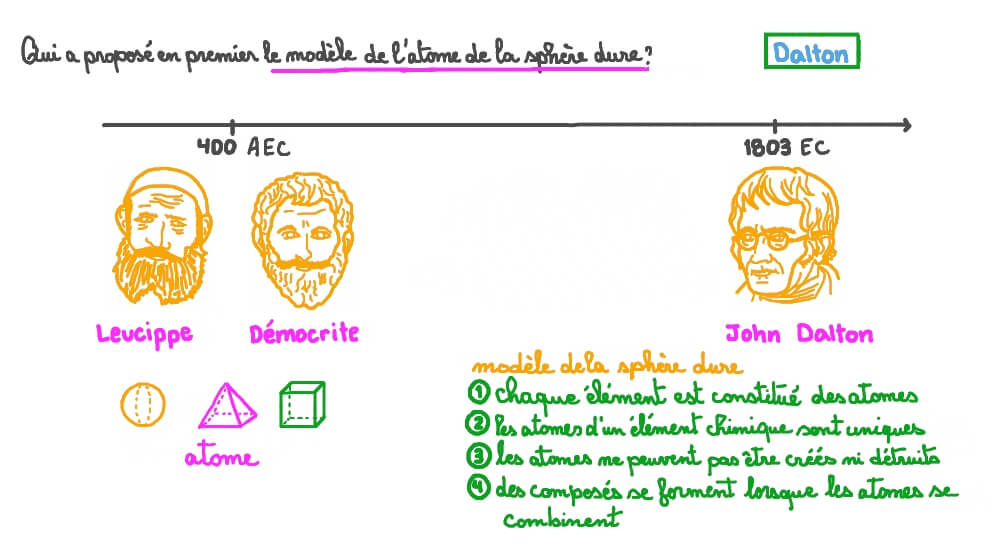 Qui a proposé en premier le modèle de l'atome de la sphère dure?
Dalton
400 AEC
1803 EC
Leucippe
Démocrite
John Dalton
atome
modèle de la sphère dure
1 chaque élément est constitué des atomes
2 les atomes d'un élément chimique sont uniques
3 les atomes ne peuvent pas être créés ni détruits
4 des composés se forment lorsque les atomes se
combinent